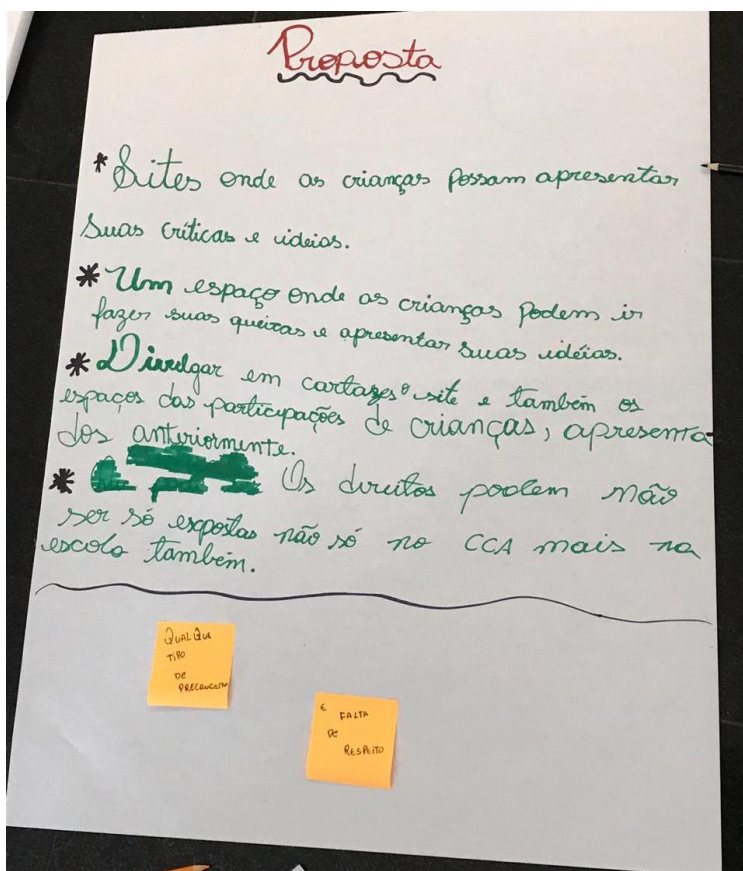 Proposta
* Sites onde as crianças possam apresentar
suas críticas e ideias.
* Um espaço onde as crianças podem ir
fazer suas queixas e apresentar suas idéias.
* Divulgar em cartazes o site e também os
espaços das participações de crianças, apresenta
dos anteriormente.
* Os direitos podem não
ser só expostas não só no CCA mais na
escola também.
QUALQUE
TIPO
DE
PRECONCEITO
E FALTA
DE
RESPEITO